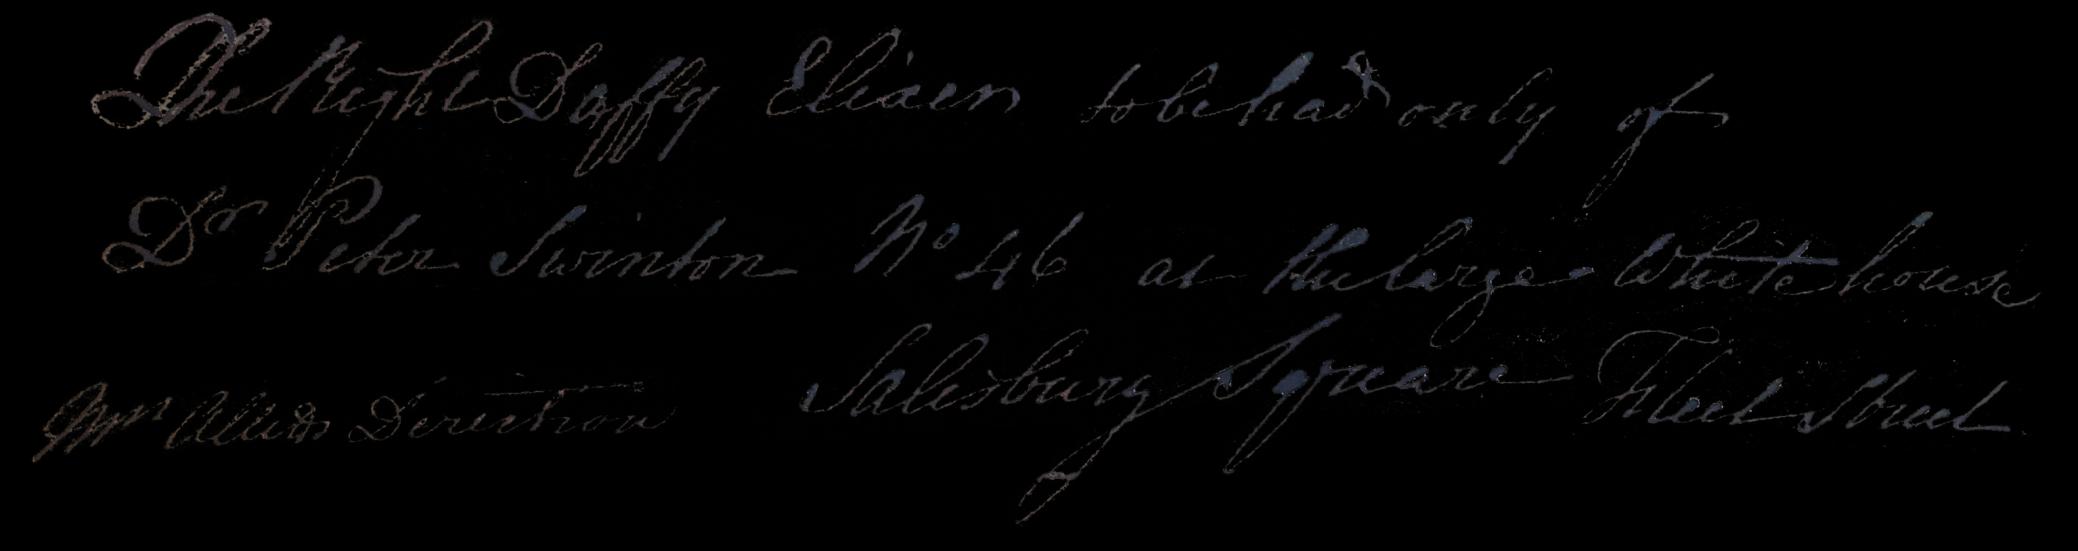 The Right Daffy Elixer to be had only of
Dr Peter Swinton No 46 at the large White house
Salesbury Square Fleet Street
Mrs Direction